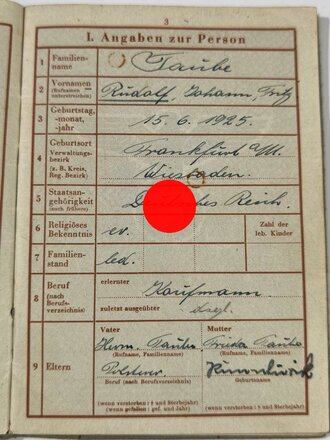 3
I. Angaben zur Person
1 Familien-
name
Taube
2 Vornamen
(Rufnamen
unterstreichen)
Rudolf, Johann, Fritz
3 Geburtstag,
-monat,
-jahr
15. 6. 1925.
4 Geburtsort
Verwaltungs-
bezirk
(z. B. Kreis,
Reg. Bezirk)
Frankfurt a/M.
Wiesbaden.
5 Staatsan-
gehörigkeit
(auch frühere)
Deutsches Reich.
6 Religiöses
Bekenntnis
ev.
Zahl der
leb. Kinder
7 Familien-
stand
led.
8 Beruf
(nach
Berufs-
verzeichnis)
erlernter
Kaufmann
zuletzt ausgeübter
dsgl.
9 Eltern
Vater
Mutter
Herm. Taube
Frieda Taube
(Rufname, Familienname)
(Rufname, Familienname)
Beruf (nach Berufsverzeichnis)
Geburtsname
(wenn verstorben: † und Sterbejahr)
(wenn gefallen: gef. und Jahr)
(wenn verstorben: † und Sterbejahr)